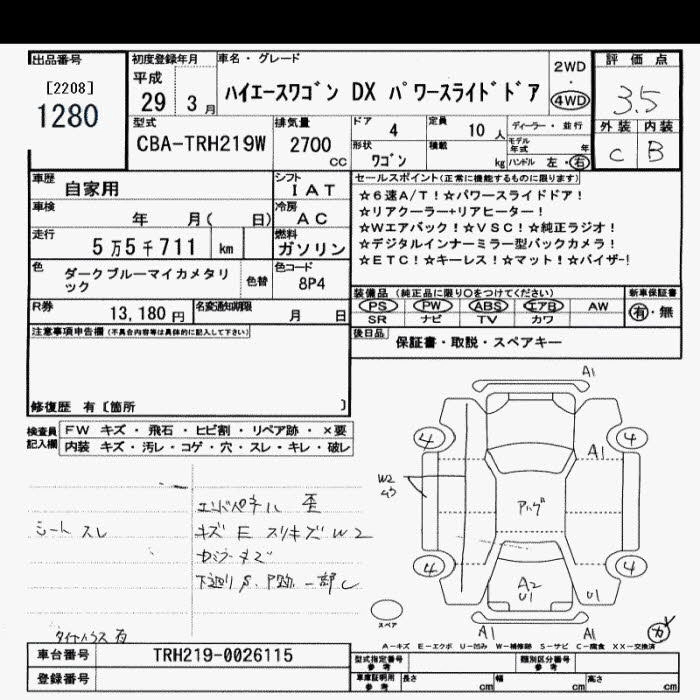 出品番号
[2208]
1280
初度登録年月
平成
29 3月
車名・グレード
ハイエースワゴン DX パワースライドドア
2WD
・
4WD
評価点
3.5
外装 内装
C B
型式
CBA-TRH219W
排気量
2700
cc
ドア 4
定員 10人
ディーラー・並行
形状
ワゴン
積載 kg
モデル年式 年
ハンドル 左・右
車歴 自家用
シフト
IAT
車検 年 月( 日)
冷房
AC
走行
5万5千711 km
燃料
ガソリン
色
ダークブルーマイカメタリック
色替
色コード
8P4
R券
13,180円
名変通知期限
月 日
セールスポイント(正常に機能するものに限ります)
☆6速A/T!☆パワースライドドア!
☆リアクーラー+リアヒーター!
☆Wエアバック!☆VSC!☆純正ラジオ!
☆デジタルインナーミラー型バックカメラ!
☆ETC!☆キーレス!☆マット!☆バイザー!
装備品(純正品に限り○をつけてください)
新車保証書
PS PW ABS エアB AW
有・無
SR ナビ TV カワ
後日品
保証書・取説・スペアキー
注意事項申告欄(不具合内容等は具体的に記入して下さい)
修復歴 有〔箇所 〕
検査員記入欄
FW キズ・飛石・ヒビ割・リペア跡・×要
内装 キズ・汚レ・コゲ・穴・スレ・キレ・破レ
シート スレ
エンドパネル 歪
キズ E スリキズ W2
下廻り S
一部 C
A1
4
4
A1
W2
A2
U1
4
4
U1
A1
A1
スペア
A-キズ E-エクボ U-凹み W-補修跡 S-サビ C-腐食 XX-交換済
車台番号
TRH219-0026115
登録番号
型式指定番号
参考
類別区分番号
参考
車庫証明用
参考
長さ cm
幅 cm
高さ cm